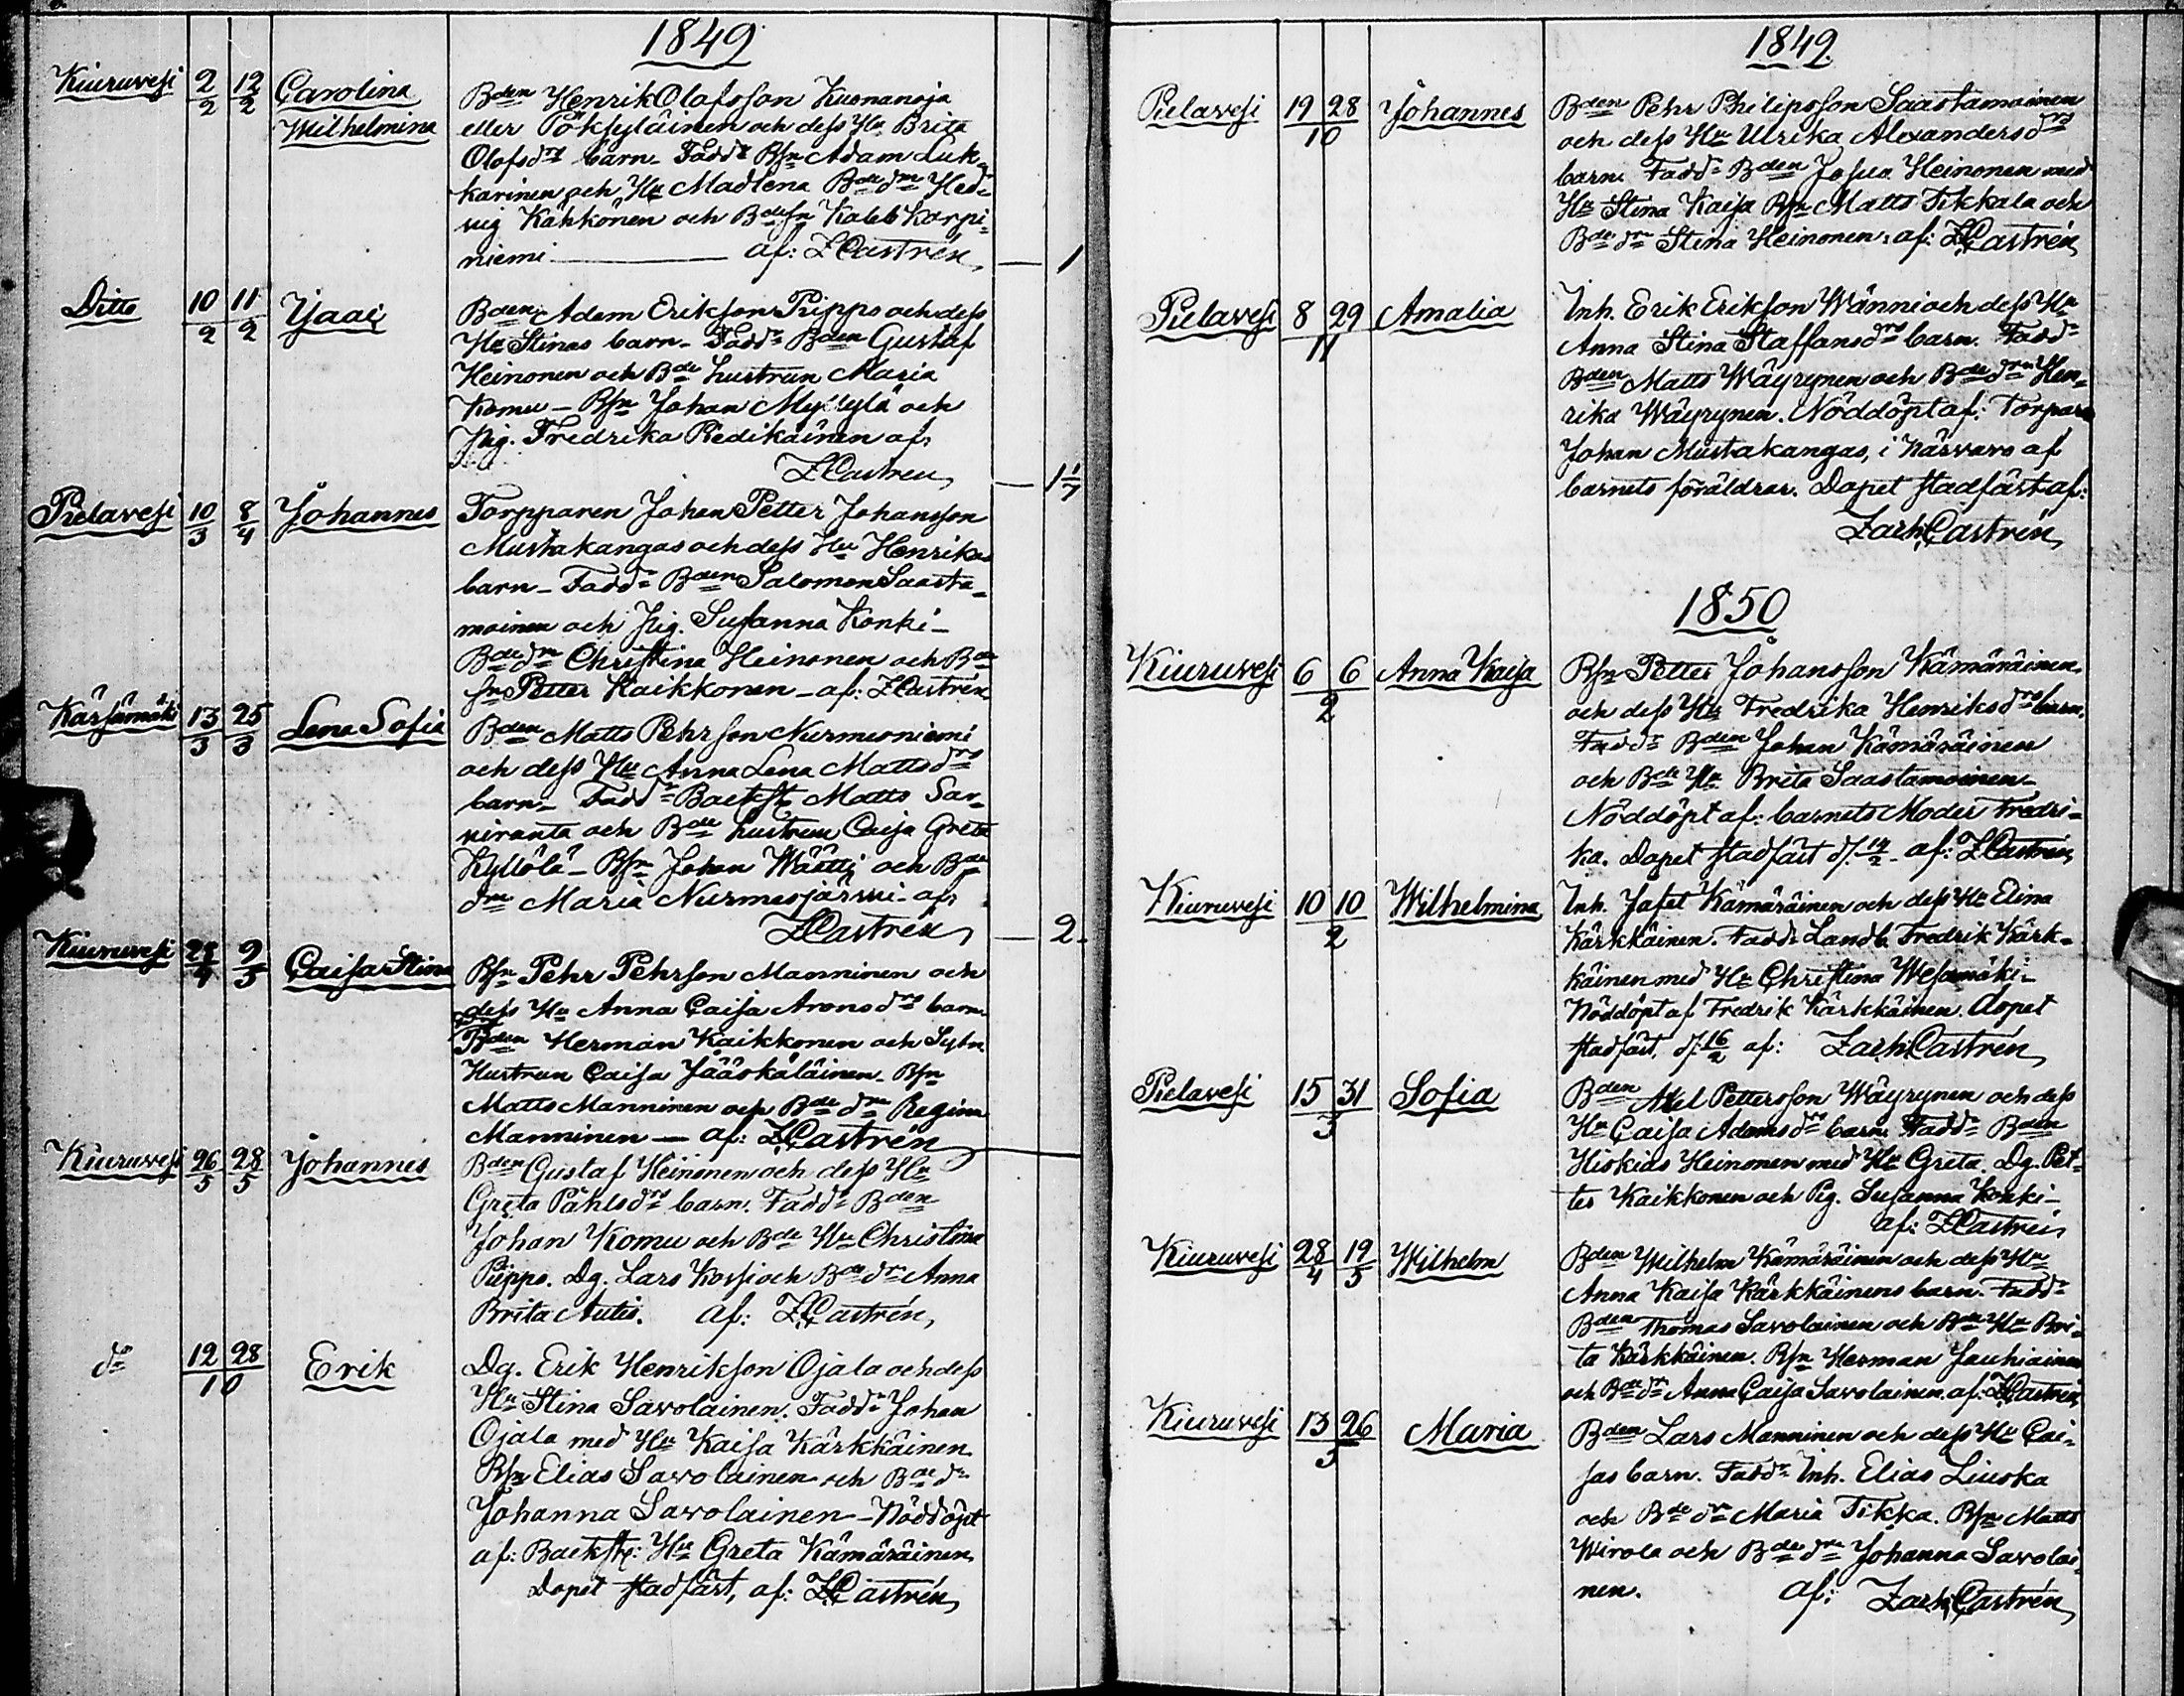 1849
Kiuruvesi 2/2 12/2 Carolina Wilhelmina
Bden Henrik Olofsson Kusnanoja
eller Pöksyläinen och dess Hu Brita
Olofsdrs barn. Faddr Bsn Adam Luk-
karinen och Hu Madlena Bde dm Hed-
vig Kähkönen och Bdesn Kaleb Karpi-
niemi — af: Z Castrén — 1
Ditto 10/2 11/2 Isaac
Bden Adam Eriksson Piippo och dess
Hu Stinas barn. Faddr Bden Gustaf
Heinonen och Bde hustrun Maria
Komu – Bsn Johan Myllylä och
Pig. Fredrika Redikäinen af:
Z Castrén — 1 1/7
Pielavesi 10/3 8/4 Johannes
Torpparen Johan Petter Johansson
Mustakangas och dess Hu Henrikas
barn – Faddr Bden Salomon Saasta-
moinen och Pig. Susanna Konki –
Bde dm Christina Heinonen och Bde
sn Petter Kaikkonen – af: Z Castrén
Kärsämäki 13/3 25/3 Lena Sofia
Bden Matts Pehrson Nurmesniemi
och dess Hu Anna Lena Mattsdrs
barn – Faddr Backst Matts Sar-
viranta och Bde hustrun Caisa Greta
Kyllölä – Bsn Johan Wäätti och Bde
dm Maria Nurmesjärwi – af:
Z Castrén — 2.
Kiuruvesi 9/5 Caisa Stina
Bsn Pehr Pehrson Manninen och
dess Hu Anna Caisa Aronsdrs barn.
Bden Herman Kaikkonen och Sytn.
Hustrun Caisa Jääskäläinen. Bsn
Matts Manninen och Bde dm Regina
Manninen — af: Z Castrén
Kiuruvesi 26/5 28/5 Johannes
Bden Gustaf Heinonen och dess Hu
Greta Påhlsdrs barn. Faddr Bden
Johan Komu och Bde Hu Christina
Piippo. Dg. Lars Kossi och Bde dr Anna
Brita Autio. af: Z Castrén
do 12 28/10 Erik
Dg. Erik Henrikson Ojala och dess
Hu Stina Savolainen. Faddr Johan
Ojala med Hu Kaisa Kärkkäinen
Bsn Elias Savolainen och Bde dr
Johanna Savolainen – Nöddöpt
af: Backst: Hu Greta Kämäräinen
Dopet stadfäst, af: Z Castrén
1849.
Pielavesi 19 28/10 Johannes
Bden Pehr Philipsson Saastamoinen
och dess Hu Ulrika Alexandersdrs
barn. Faddr Bden Josua Heinonen med
Hu Stina Kaisa Bsn Matts Tikkala och
Bde dm Stina Heinonen. af: Z Castrén
Pielavesi 8 29/11 Amalia
Inh. Erik Erikson Wänni och dess Hu
Anna Stina Staffansdrs barn. Faddr
Bden Matts Wäyrynen och Bde drn Hen-
rika Wäyrynen. Nöddöpt af: Torparn
Johan Mustakangas, i närvaro af
barnets föräldrar. Dopet stadfäst af:
Zach. Castrén
1850
Kiuruvesi 6 6/2 Anna Kaisa
Bsn Petter Johansson Kämäräinen
och dess Hu Fredrika Henriksdrs barn.
Faddr Bden Johan Kämäräinen
och Bde Hu Brita Saastamoinen –
Nöddöpt af: barnets Moder Fredri-
ka. Dopet stadfäst d. 14/2 af: Z Castrén
Kiuruvesi 10 10/2 Wilhelmina
Inh. Jafet Kämäräinen och dess Hu Elina
Kärkkäinen. Faddr Landb. Fredrik Kärk-
käinen med Hu Christina Wesamäki –
Nöddöpt af Fredrik Kärkkäinen. dopet
stadfäst, d. 16/2 af: Zach Castrén
Pielavesi 15 31/3 Sofia
Bden Abel Pettersson Wäyrynen och dess
Hu Caisa Adamsdrs barn. Faddr Bden
Hiskias Heinonen med Hu Greta. Dg. Pet-
ter Kaikkonen och Pig. Susanna Konki –
af: Z Castrén
Kiuruvesi 28/4 19/5 Wilhelm
Bden Wilhelm Kämäräinen och dess Hu
Anna Kaisa Kärkkäinens barn. Faddr
Bden Thomas Savolainen och Bde Hu Bri-
ta Kärkkäinen. Bsn Herman Jauhiainen
och Bde dr Anna Caisa Savolainen. af: Z Castrén
Kiuruvesi 13 26/5 Maria
Bden Lars Manninen och dess Hu Cai-
sas barn. Faddr Inh. Elias Liuska
och Bde dr Maria Tikka. Bsn Matts
Wirola och Bde dm Johanna Savolai-
nen. af: Zach. Castrén